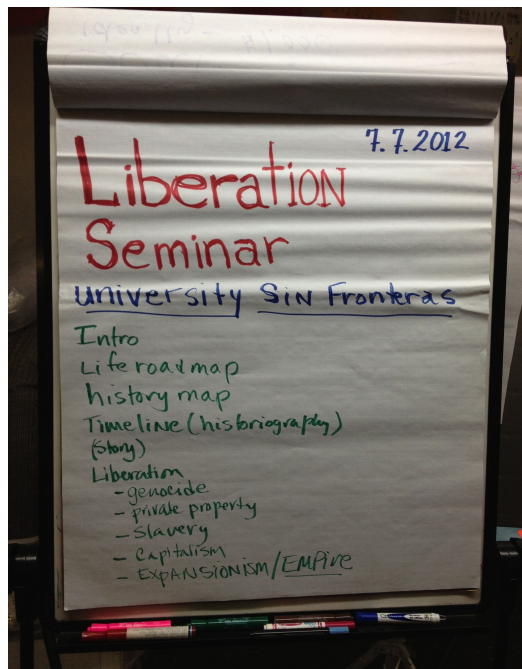 7.7.2012
Liberation
Seminar
University Sin Fronteras
Intro
Life roadmap
history map
Timeline (historiography)
(Story)
Liberation
- genocide
- private property
- Slavery
- Capitalism
- Expansionism/Empire